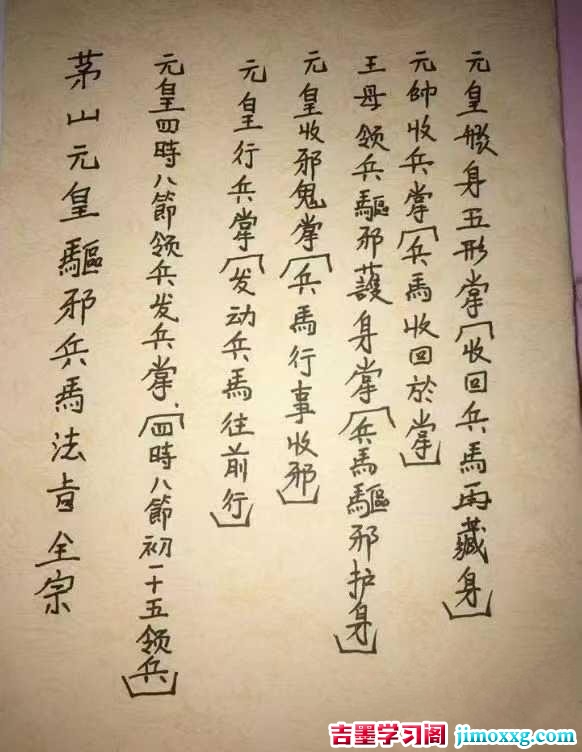 茅山元皇驅邪兵馬法旨全宗
元皇四時八節领兵发兵掌、[四時八節初一十五领兵]
元皇行兵掌[发动兵馬往前行]
元皇收邪鬼掌[兵馬行事收邪]
王母领兵驅邪護身掌[兵馬驅邪护身]
元帥收兵掌[兵馬收回於掌]
元皇身五形掌[收回兵馬再藏身]
吉墨学习阁 jimoxxg.com